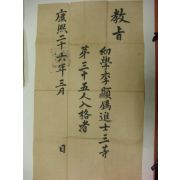 教旨
幼學李顯錫進士三等
第三十五人入格者
康熙二十六年三月 日